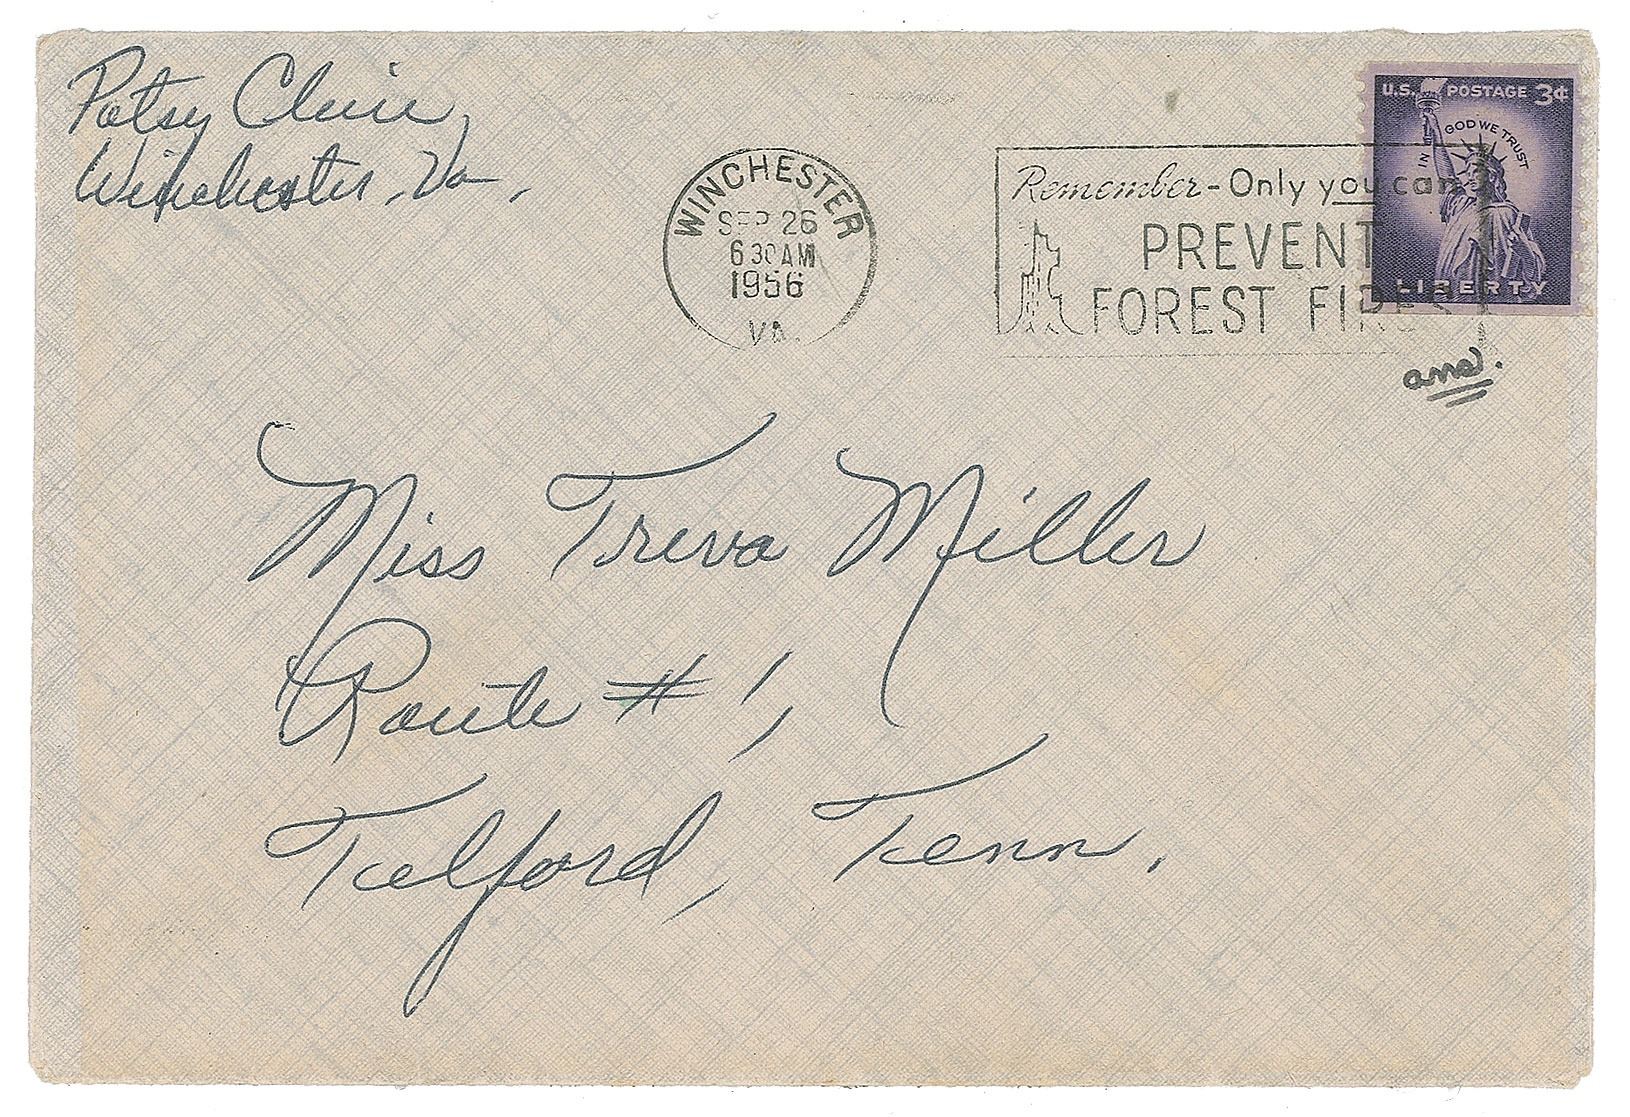 Patsy Cline,
Winchester, Va.
WINCHESTER
SEP 26
6 30 AM
1956
VA.
Remember - Only you can
PREVENT
FOREST FIRES
U.S. POSTAGE 3¢
IN GOD WE TRUST
LIBERTY
ans.
Miss Treva Miller
Route #1,
Telford, Tenn.